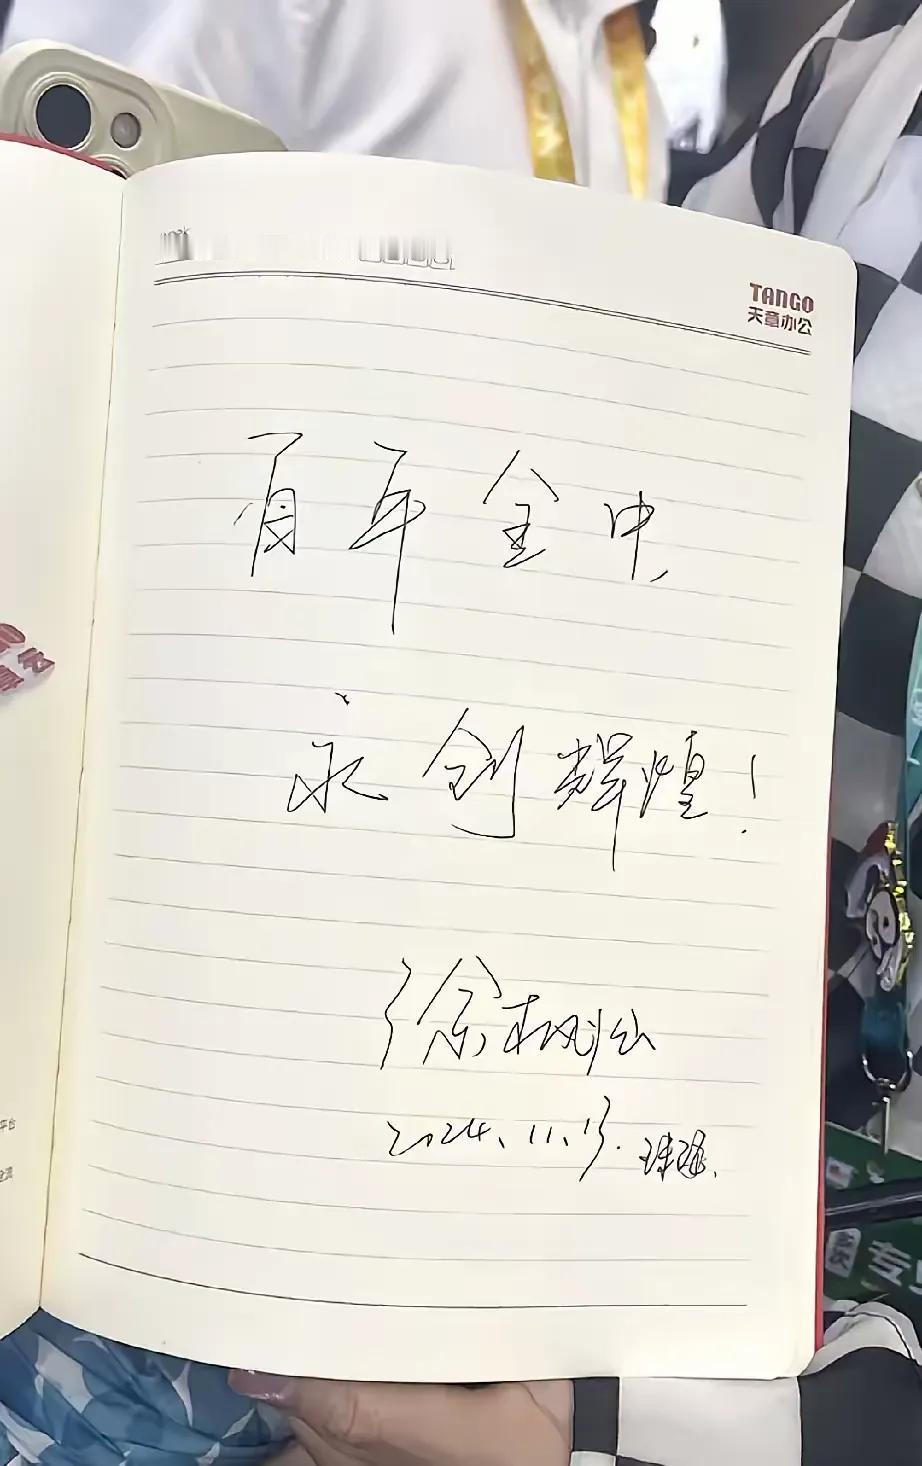 TANGO
天章办公
百年金中,
永创辉煌!
徐枫灿
2024.11.13. 珠海.
平台
专